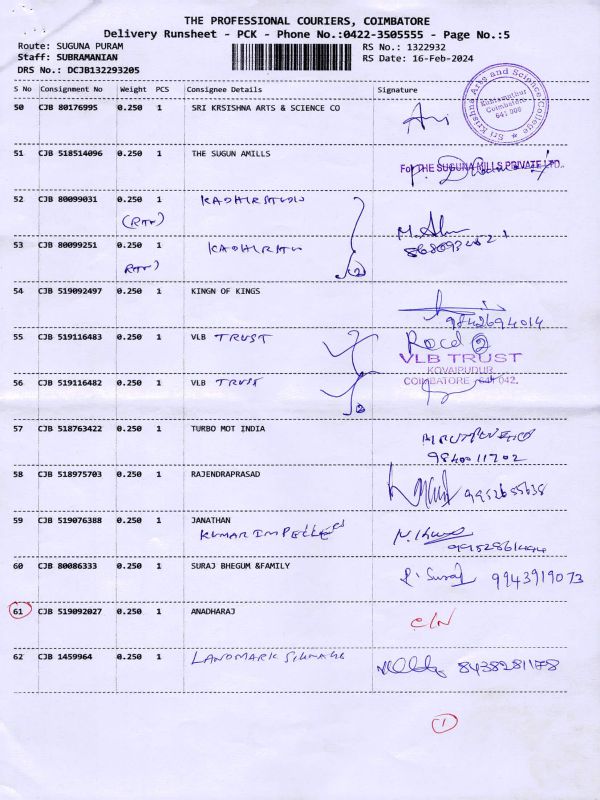 THE PROFESSIONAL COURIERS, COIMBATORE
Delivery Runsheet - PCK - Phone No.:0422-3505555 - Page No.:5
Route: SUGUNA PURAM
RS No.: 1322932
Staff: SUBRAMANIAN
RS Date: 16-Feb-2024
DRS No.: DCJB132293205
S No Consignment No Weight PCS Consignee Details Signature
50 CJB 80176995 0.250 1 SRI KRSISHNA ARTS & SCIENCE CO
Sri Krishna Arts and Science College
Kuniamuthur
Coimbatore
641 008
51 CJB 518514096 0.250 1 THE SUGUN AMILLS
For THE SUGUNA MILLS PRIVATE LTD.
52 CJB 80099031 0.250 1 KADHIR
53 CJB 80099251 0.250 1 KADHIR
54 CJB 519092497 0.250 1 KINGN OF KINGS
9842694014
55 CJB 519116483 0.250 1 VLB TRUST
Recd 2
VLB TRUST
KOVAIPUDUR
COIMBATORE - 641 042.
56 CJB 519116482 0.250 1 VLB TRUST
57 CJB 518763422 0.250 1 TURBO MOT INDIA
9840011702
58 CJB 518975703 0.250 1 RAJENDRAPRASAD
9952655638
59 CJB 519076388 0.250 1 JANATHAN
KUMAR IMPELLER
60 CJB 80086333 0.250 1 SURAJ BHEGUM &FAMILY
9943919073
61 CJB 519092027 0.250 1 ANADHARAJ
C/N
62 CJB 1459964 0.250 1 LANDMARK SIGNAGE
8438281178
1